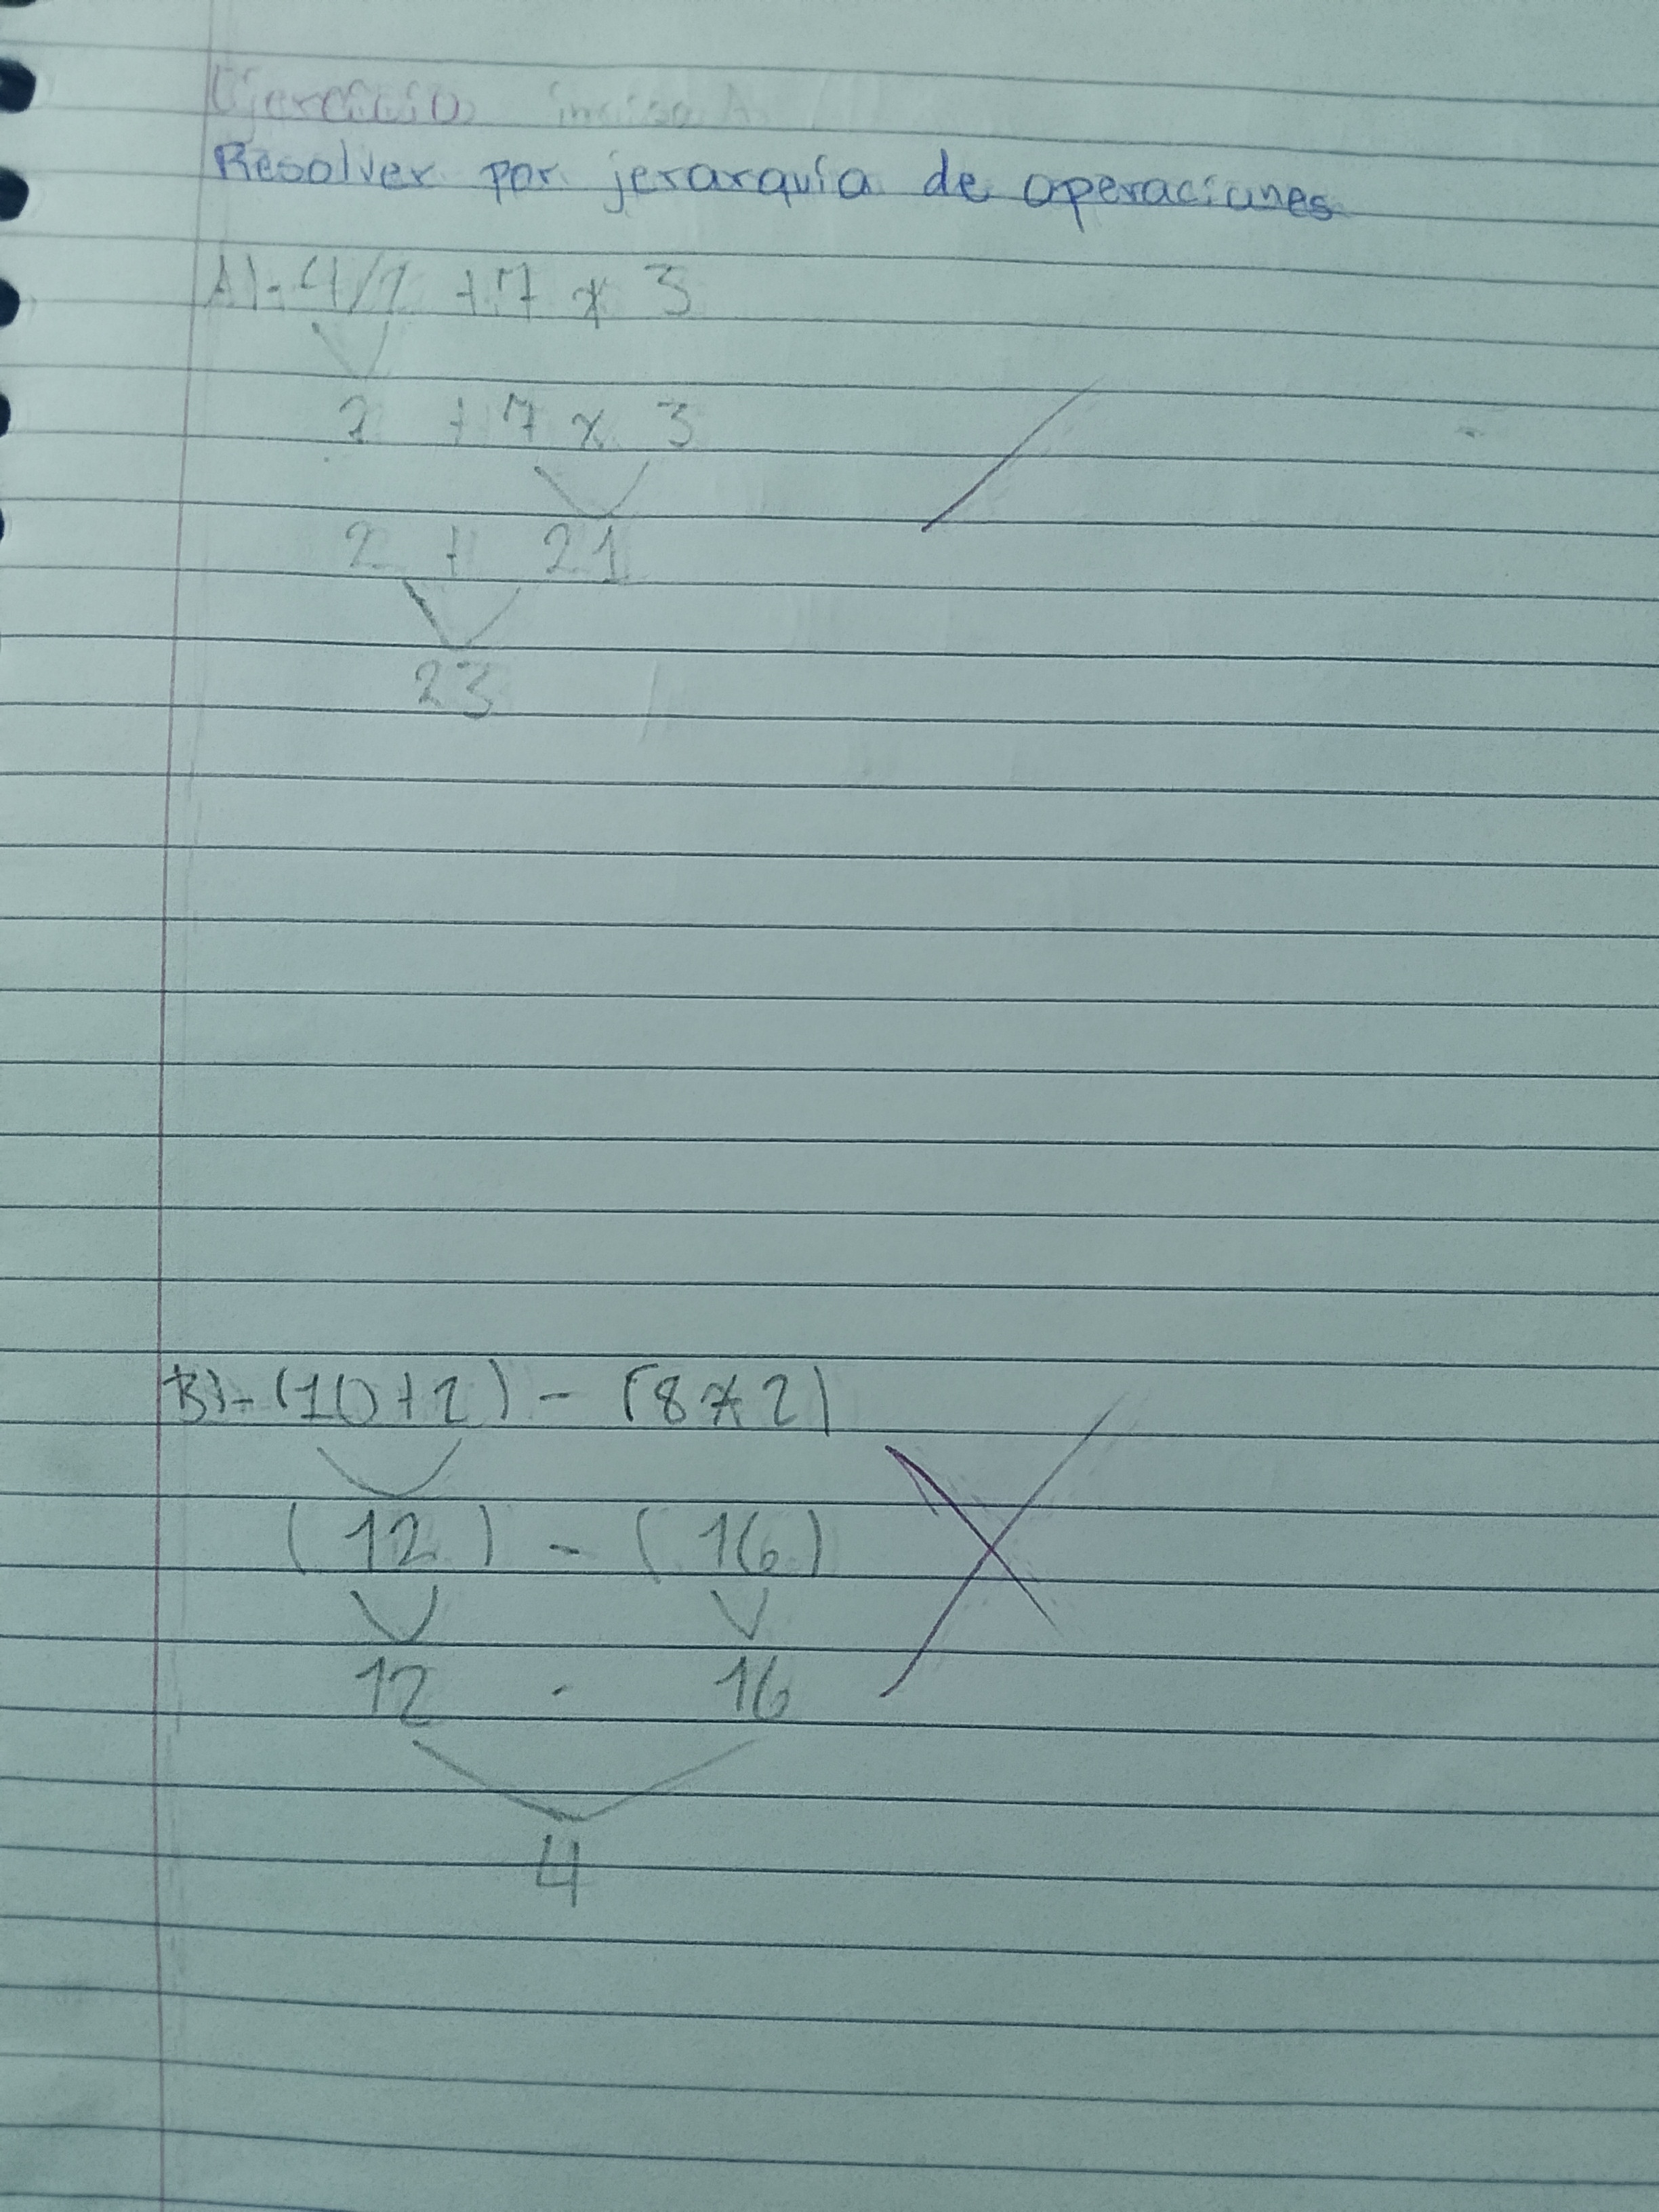 Ejercicio inciso A
Resolver por jerarquía de operaciones
A).- 4/2 + 7 x 3
2 + 7 x 3
2 + 21
23
B).- (10+2) - (8x2)
(12) - (16)
12 - 16
4